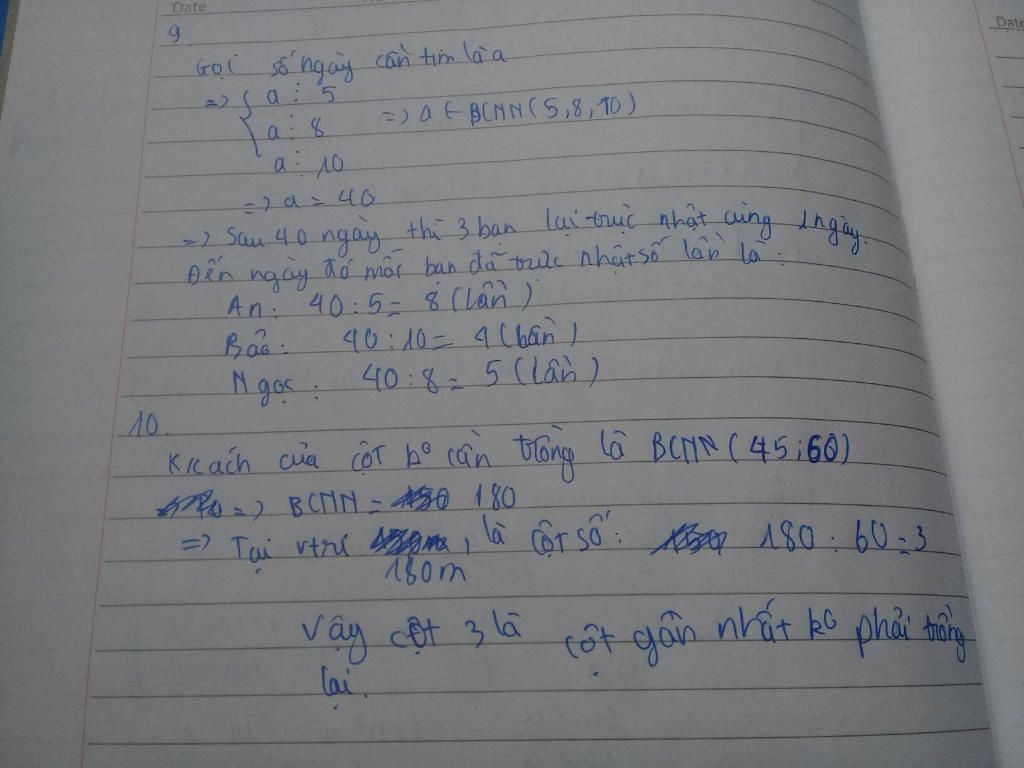 Date
Date
9
Gọi số ngày cần tìm là a
=> { a ⋮ 5
a ⋮ 8 => a ∈ BCNN (5,8,10)
a ⋮ 10
=> a = 40
=> Sau 40 ngày thì 3 bạn lại trực nhật cùng 1 ngày.
Đến ngày đó mỗi bạn đã trực nhật số lần là:
An: 40 : 5 = 8 (lần)
Bảo: 40 : 10 = 4 (lần)
Ngọc: 40 : 8 = 5 (lần)
10.
K/cách của cột k° cần trồng là BCNN (45;60)
=> BCNN = 180
=> Tại vtrí 180m, là cột số: 180 : 60 = 3
Vậy cột 3 là cột gần nhất k° phải trồng
lại.